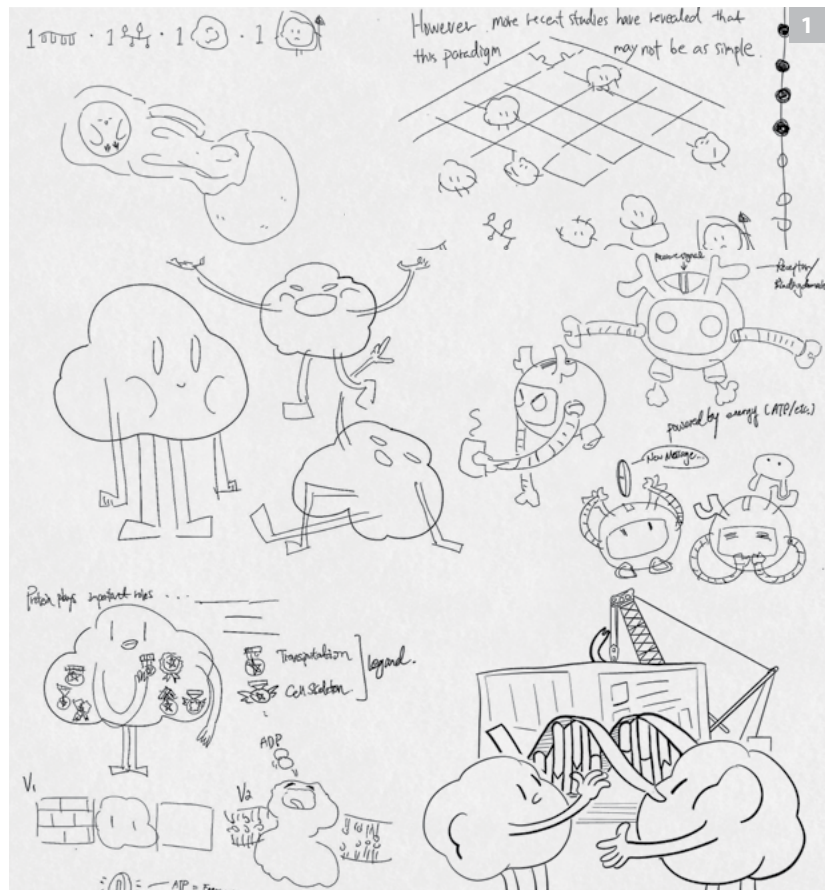 1 · 1 · 1 · 1
However more recent studies have revealed that
this paradigm may not be as simple.
1
Receptor/
powered by energy (ATP/etc.)
New Message...
Protein plays important roles ...
Transportation
Cell skeleton
ADP
V1
V2
ATP